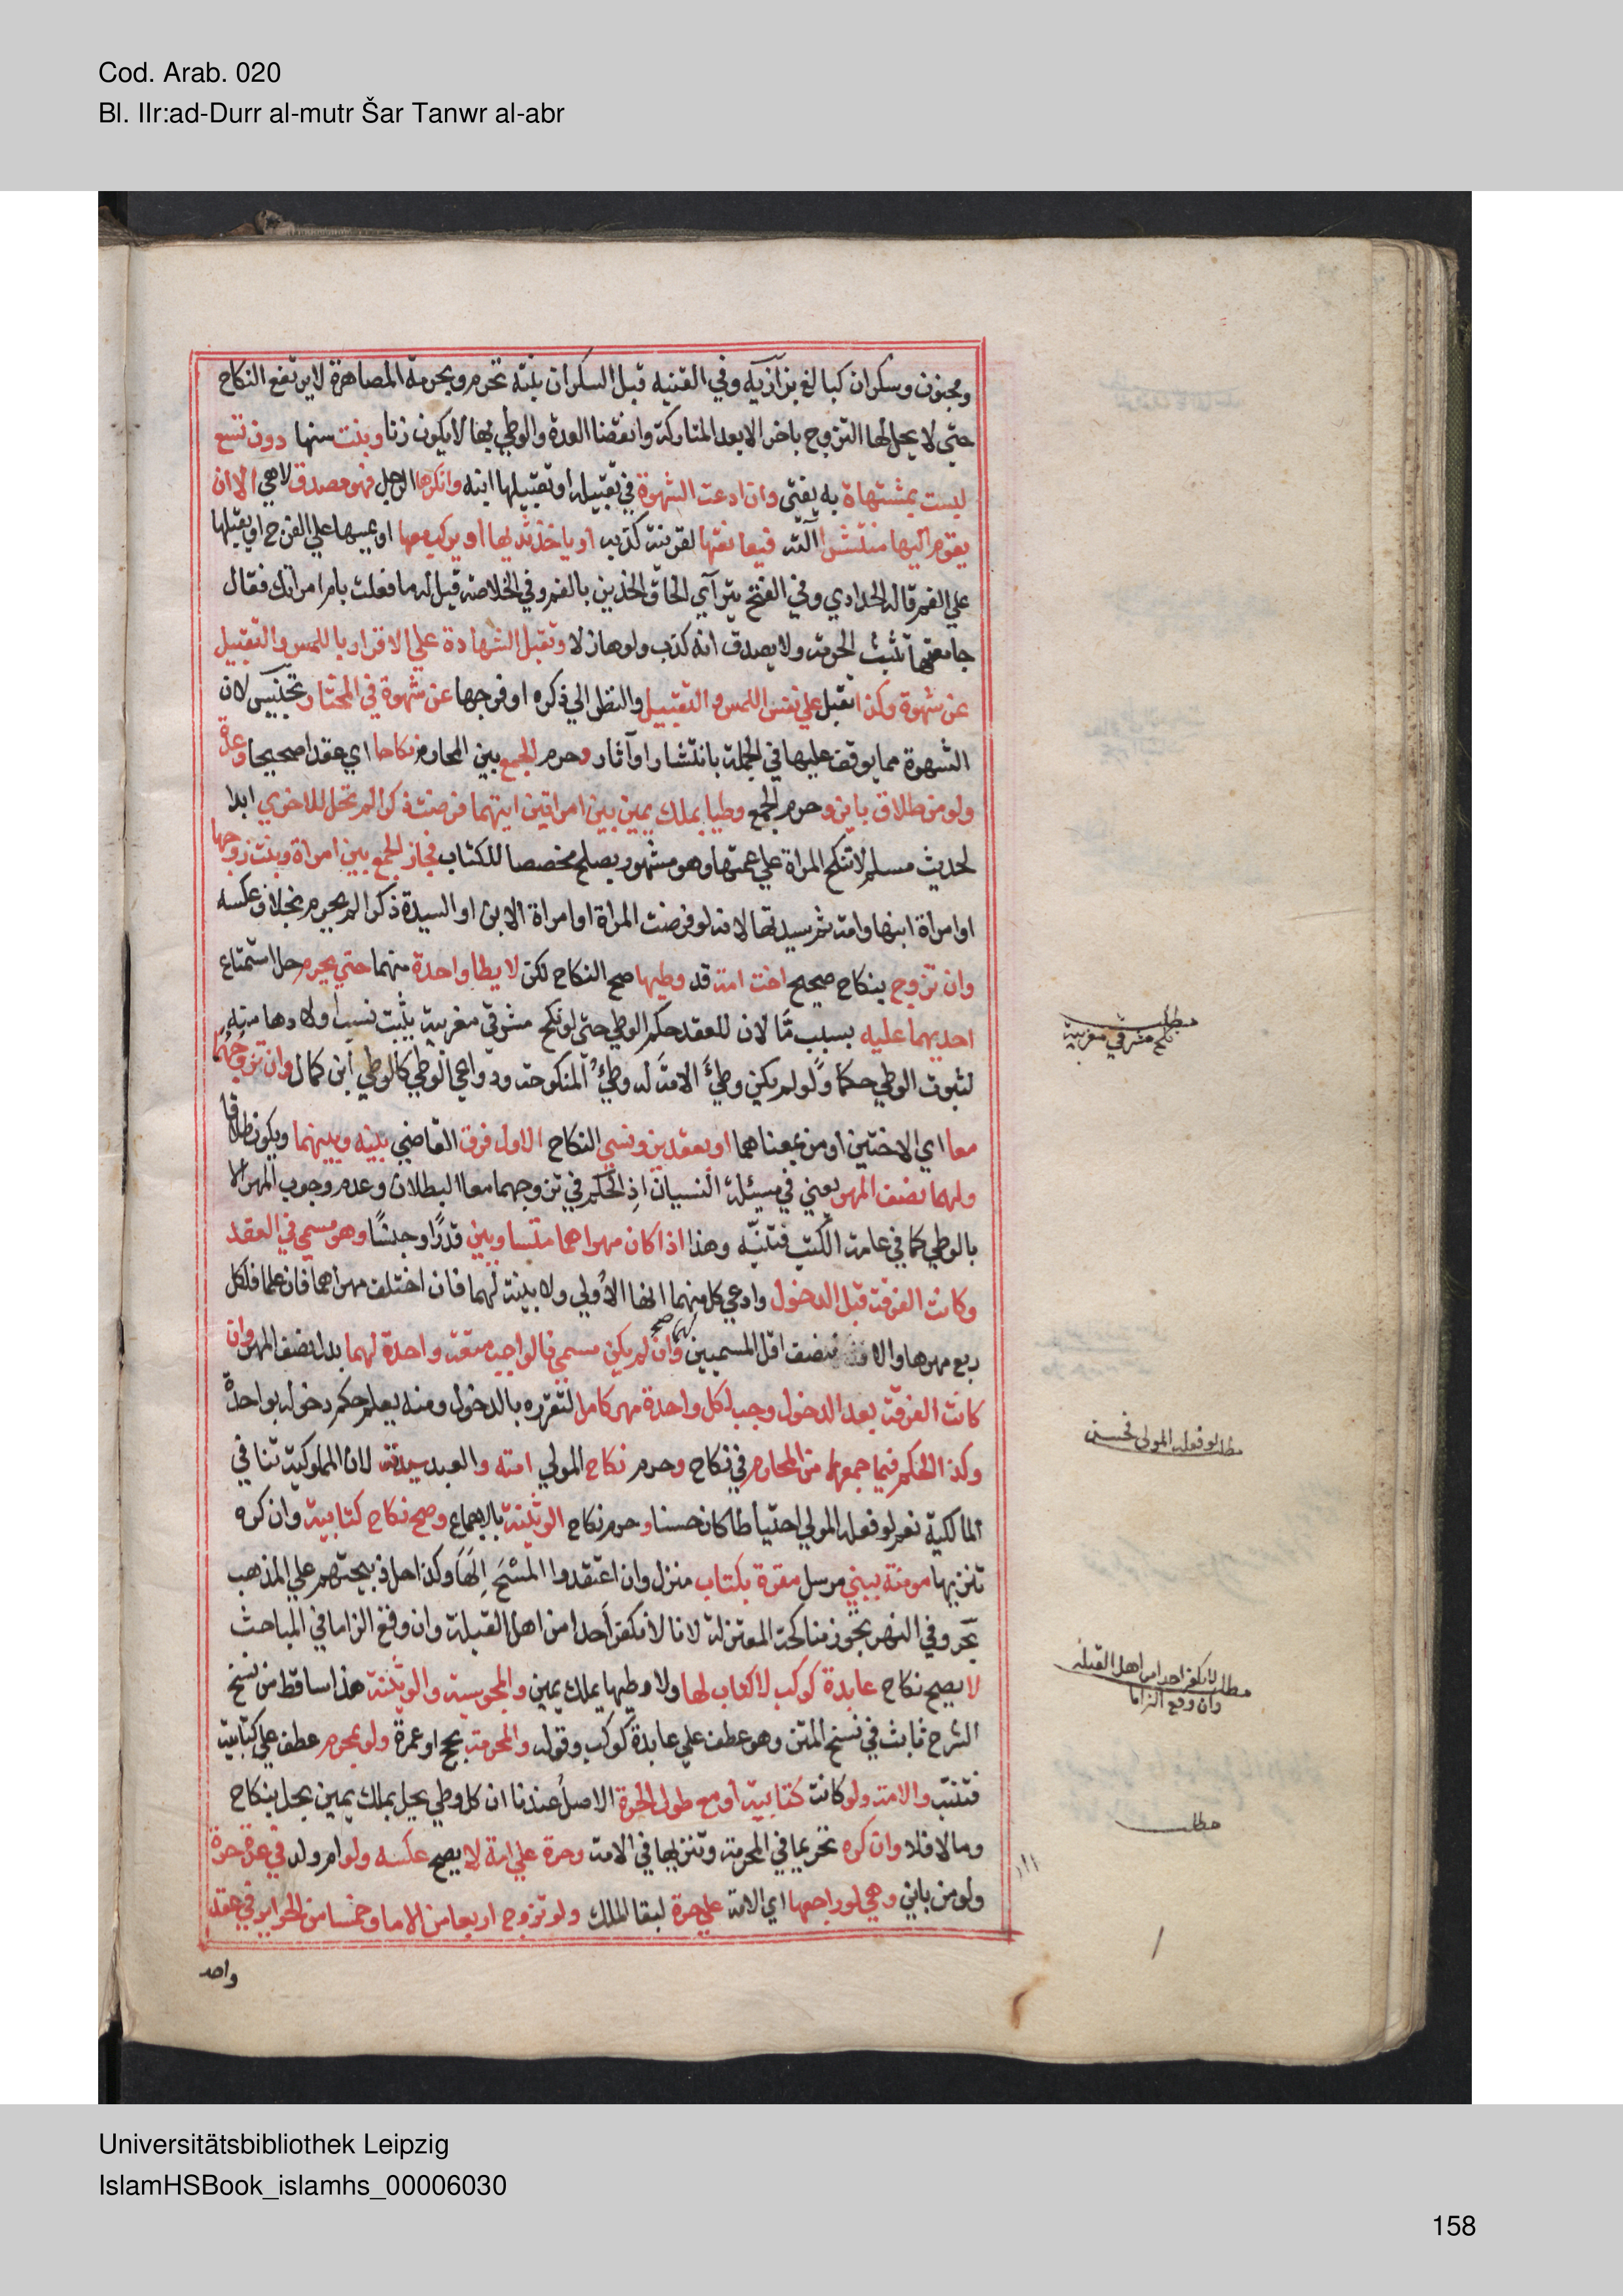 Cod. Arab. 020
Bl. IIr:ad-Durr al-mutr Šar Tanwr al-abr
ومجنون وسكران كبالغ بزازيه وفي القنيه قبل السكران بنته تحرم وبحرمة المصاهرة لا يرتفع النكاح
حتى لا يحل لها التزوج باخر الا بعد المتاركة وانقضا العدة والوطي بها لا يكون زنا وبنت سنها دون تسع
ليست بمشتهاة به يفتى وان ادعت الشهوة في تقبيله او تقبيلها ابنه وانكرها الرجل فهو مصدق لا هي الا ان
يقوم اليها منتشرا آلته فيعانقها لقرينة كذبه او ياخذ ثديها او يركب معها او يمسها على الفرج او يقبلها
علي الفم قاله الحدادي وفي الفتح يترآي الحاق الخدين بالفم وفي الخلاصة قيل له ما فعلت بام امراتك فقال
جامعتها تثبت الحرمة ولا يصدق انه كذب ولو هازلا وتقبل الشهادة علي الاقرار باللمس والتقبيل
عن شهوة وكذا تقبل علي نفس اللمس والتقبيل والنظر الي ذكره او فرجها عن شهوة في المختار تجنيس لان
الشهوة مما يوقف عليها في الجملة بانتشار او آثار وحرم الجمع بين المحارم نكاحا اي عقدا صحيحا وعدة
ولو من طلاق باين وحرم الجمع وطيا بملك يمين بين امراتين ايتهما فرضت ذكرا لم تحل للاخري ابدا
لحديث مسلم لا تنكح المراة علي عمتها وهو مشهور يصلح مخصصا للكتاب فجاز الجمع بين امراة وبنت زوجها
او امراة ابنها وامة ثم سيدتها لانه لو فرضت المراة او امراة الابن او السيدة ذكرا لم يحرم بخلاف عكسه
وان تزوج بنكاح صحيح اخت امة قد وطيها صح النكاح لكن لا يطا واحدة منهما حتي يحرم حل استمتاع
احديهما عليه بسبب مَّا لان للعقد حكم الوطي حتى لو نكح مشرقي مغربية يثبت نسب اولادها منه
لثبوت الوطي حكما ولو لم يكن وطئ الامة له وطئ المنكوحة ودواعي الوطي كالوطي ابن كمال وان تزوجهما
معا اي الاختين او من بمعناهما او بعقدين ونسي النكاح الاول فرق القاضي بينه وبينهما ويكون طلاقا
ولهما نصف المهر يعني في مسئلة النسيان اذ الحكم في تزوجهما معا البطلان وعدم وجوب المهر الا
بالوطي كما في عامة الكتب فتنبه وهذا اذا كان مهراهما متساويين قدرا وجنسا وهو مسمي في العقد
وكانت الفرقة قبل الدخول وادعي كل منهما انها الاولي ولا بينة لهما فان اختلف مهراهما فان علما فلكل
ربع مهرها والا فنصف اقل المسميين وان لم يكن مسمي فالواجب متعة واحدة لهما بدل نصف المهر وان
كانت الفرقة بعد الدخول وجب لكل واحدة مهر كامل لتقرره بالدخول ومنه يعلم حكم دخوله بواحدة
وكذا الحكم فيما جمعهما من المحارم في نكاح وحرم نكاح المولي امته والعبد سيدته لان المملوكية تنافي
المالكية نعم لو فعله المولي احتياطا كان حسنا وحرم نكاح الوثنية بالاجماع وصح نكاح كتابية وان كره
تنزيها مومنة بنبي مرسل مقرة بكتاب منزل وان اعتقدوا المسيح الها وكذا حل ذبيحتهم علي المذهب
بحر وفي النهر تجوز مناكحة المعتزلة لانا لا نكفر احدا من اهل القبلة وان وقع الزاما في المباحث
لا يصح نكاح عابدة كوكب لا كتاب لها ولا وطيها بملك يمين والمجوسية والوثنية هذا ساقط من نسخ
الشرح ثابت في نسخ المتن وهو عطف علي عابدة كوكب وقوله والمحرمة بحج او عمرة ولو بمحرم عطف علي كتابية
فتنبه والامة ولو كانت كتابية او مع طول الحرة الاصل عندنا ان كل وطي يحل بملك يمين يحل بنكاح
وما لا فلا وان كره تحريما في المحرمة وتنزيها في الامة وحرة علي امة لا يصح عكسه ولو ام ولد في عدة حرة
ولو من باين وصح لو راجعها اي الامة علي حرة لبقا الملك ولو تزوج اربعا من الاما وخمسا من الحراير في عقد
واحد
مطلب
نكح مشرقي مغربية
مطلب لو فعله المولى فحسن
مطلب لا نكفر احدا من اهل القبلة
وان وقع الزاما
مطلب
Universitätsbibliothek Leipzig
IslamHSBook_islamhs_00006030
158